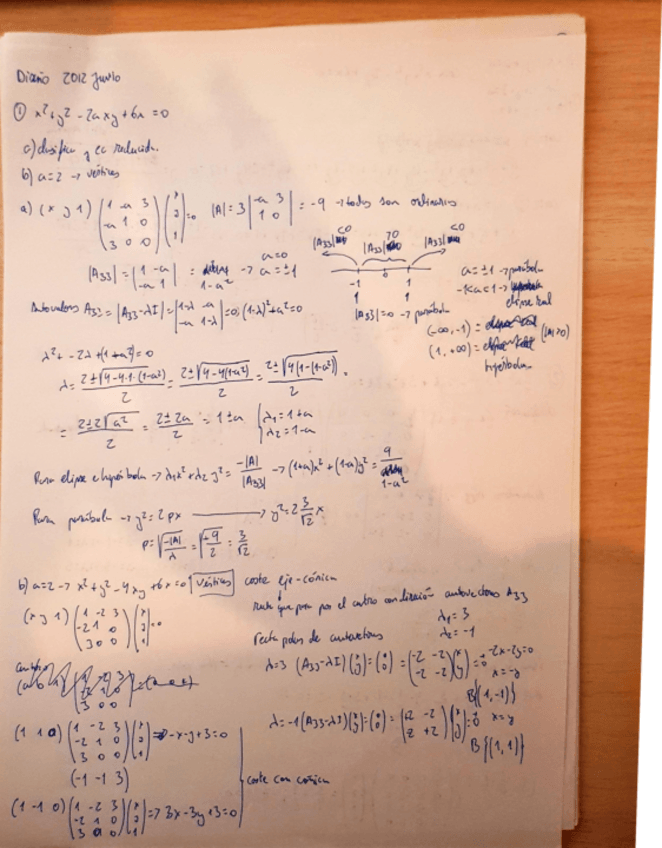 Diseño 2012 Junio
① x²+y²-2axy+6x=0
a) clasifica y ec reducida.
b) a=2 → vértices
a) (x y 1) (1 -a 3 / -a 1 0 / 3 0 0) (x / y / 1) =0 |A| = 3 |-a 3 / 1 0| = -9 → todas son ordinarias
|A33|<0 |A33|>0 |A33|<0
-1 0 1
|A33| = |1 -a / -a 1| = 1-a² → a=±1
a=0
|A33|=0 → parábola
a=±1 → parábola
-1<a<1 → elipse real
(-∞,-1) =
(1,+∞) = hipérbola
Autovalores A33 = |A33-λI| = |1-λ -a / -a 1-λ| =0; (1-λ)²+a²=0
λ²+ -2λ+(1+a²)=0
λ = 2±√(4-4·1·(1-a²)) / 2 = 2±√(4-4(1-a²)) / 2 = 2±√(4(1-(1-a²))) / 2 =
= 2±2√a² / 2 = 2±2a / 2 = 1±a { λ1=1+a / λ2=1-a
Para elipse e hipérbola → λ1x²+λ2y² = -|A| / |A33| → (1+a)x²+(1-a)y² = 9 / 1-a²
Para parábola → y²=2px → y²=2 3/√2 x
p=√(-|A|/λ) = √(+9/2) = 3/√2
b) a=2 → x²+y²-4xy+6x=0 Vértices corte eje-cónica
recta que pasa por el centro con dirección autovectores A33
(x y 1) (1 -2 3 / -2 1 0 / 3 0 0) (x / y / 1) =0
λ1=3
λ2=-1
Recta polar de autovectores
λ=3 (A33-λI)(x / y)=(0 / 0) = (-2 -2 / -2 -2)(x / y) -2x-2y=0
x=-y
B{(1,-1)}
λ=-1 (A33-λI)(x / y)=(0 / 0) = (+2 -2 / 2 +2)(x / y) x=y
B{(1,1)}
(1 1 0) (1 -2 3 / -2 1 0 / 3 0 0) (x / y / 1) => -x-y+3=0
(-1 -1 3)
corte con cónica
(1 -1 0) (1 -2 3 / -2 1 0 / 3 0 0) (x / y / 1) => 3x-3y+3=0